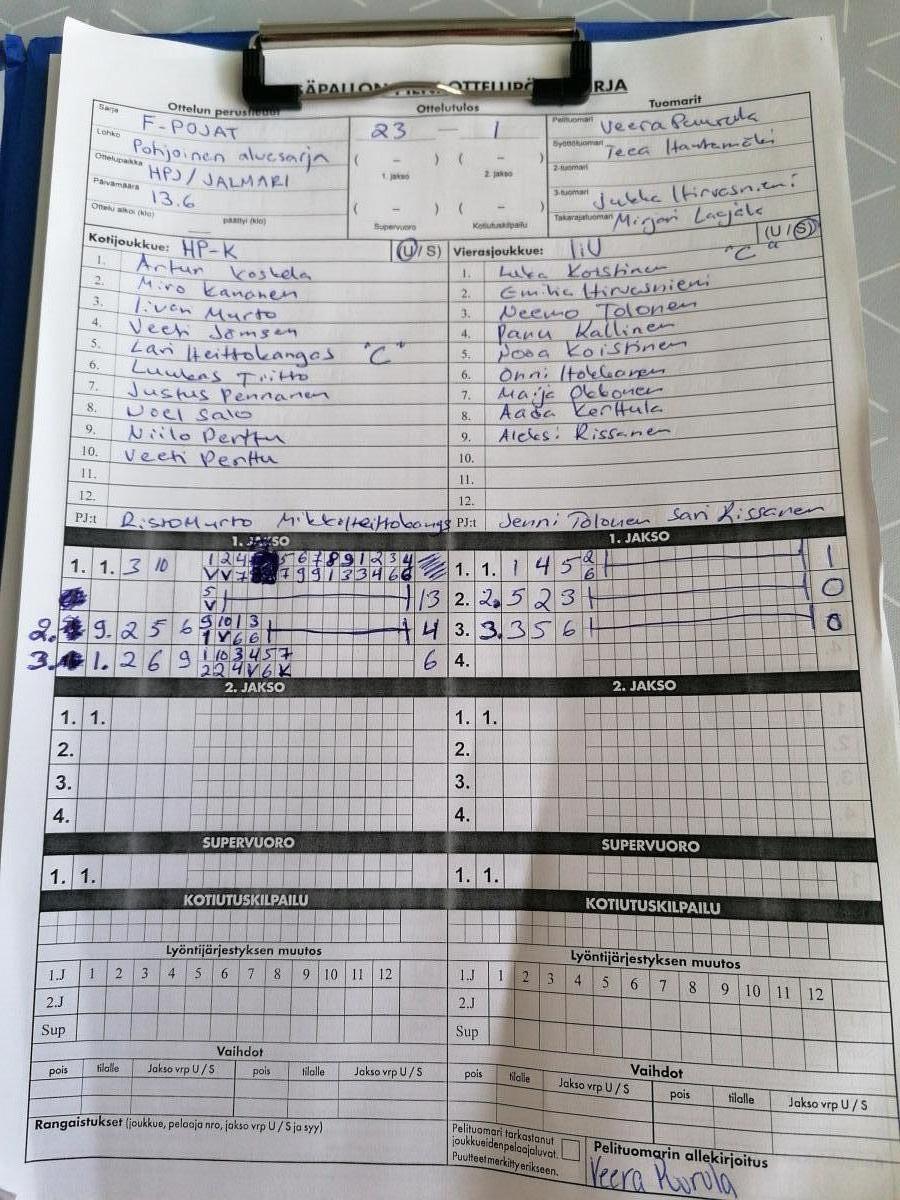 Ottelun perustiedot Ottelutulos Tuomarit
Sarja F-POJAT 23 — 1 Pelituomari Veera Puurula
Lohko Pohjoinen aluesarja ( – ) ( – ) Syöttötuomari Teea Hantamäki
Ottelupaikka HPJ/JALMARI 1. jakso 2. jakso 2-tuomari
Päivämäärä 13.6 ( – ) ( – ) 3-tuomari Jukka Hirvasniemi
Ottelu alkoi (klo) päättyi (klo) Supervuoro Kotiutuskilpailu Takarajatuomari Mirjari Laajala
Kotijoukkue: HP-K (U/S) Vierasjoukkue: IiU "C" (U/S)
1. Artur Koskela 1. Luka Koistinen
2. Miro Kananen 2. Emilia Hirvasniemi
3. Iivan Murto 3. Neemo Tolonen
4. Veeti Jomsen 4. Panu Kallinen
5. Lari Heittokangas "C" 5. Nooa Koistinen
6. Luukas Tritto 6. Onni Hokkanen
7. Justus Pennanen 7. Maija Okkonen
8. Noel Salo 8. Aada Kerttula
9. Niilo Perttu 9. Aleksi Rissanen
10. Veeti Perttu 10.
11. 11.
12. 12.
PJ:t Risto Murto Mikko Heittokangas PJ:t Jenni Tolonen Sari Rissanen
1. JAKSO 1. JAKSO
1. 1. 3 10 1 2 4 5 6 7 8 9 1 2 3 4 1. 1. 1 4 5 2 1
V V 7 7 9 9 1 3 3 4 6 6 6
5 13 2. 2. 5 2 3 0
V
2. 9. 2 5 6 9 10 1 3 4 3. 3. 3 5 6 0
1 V 6 6
3. 1. 2 6 9 1 10 3 4 5 7 6 4.
2 2 4 V 6 K
2. JAKSO 2. JAKSO
1. 1. 1. 1.
2. 2.
3. 3.
4. 4.
SUPERVUORO SUPERVUORO
1. 1. 1. 1.
KOTIUTUSKILPAILU KOTIUTUSKILPAILU
Lyöntijärjestyksen muutos Lyöntijärjestyksen muutos
1.J 1 2 3 4 5 6 7 8 9 10 11 12 1.J 1 2 3 4 5 6 7 8 9 10 11 12
2.J 2.J
Sup Sup
Vaihdot Vaihdot
pois tilalle Jakso vrp U / S pois tilalle Jakso vrp U / S pois tilalle Jakso vrp U / S pois tilalle Jakso vrp U / S
Rangaistukset (joukkue, pelaaja nro, jakso vrp U / S ja syy) Pelituomari tarkastanut
joukkueidenpelaajaluvat.
Puutteetmerkittyerikseen.
Pelituomarin allekirjoitus
Veera Puurula